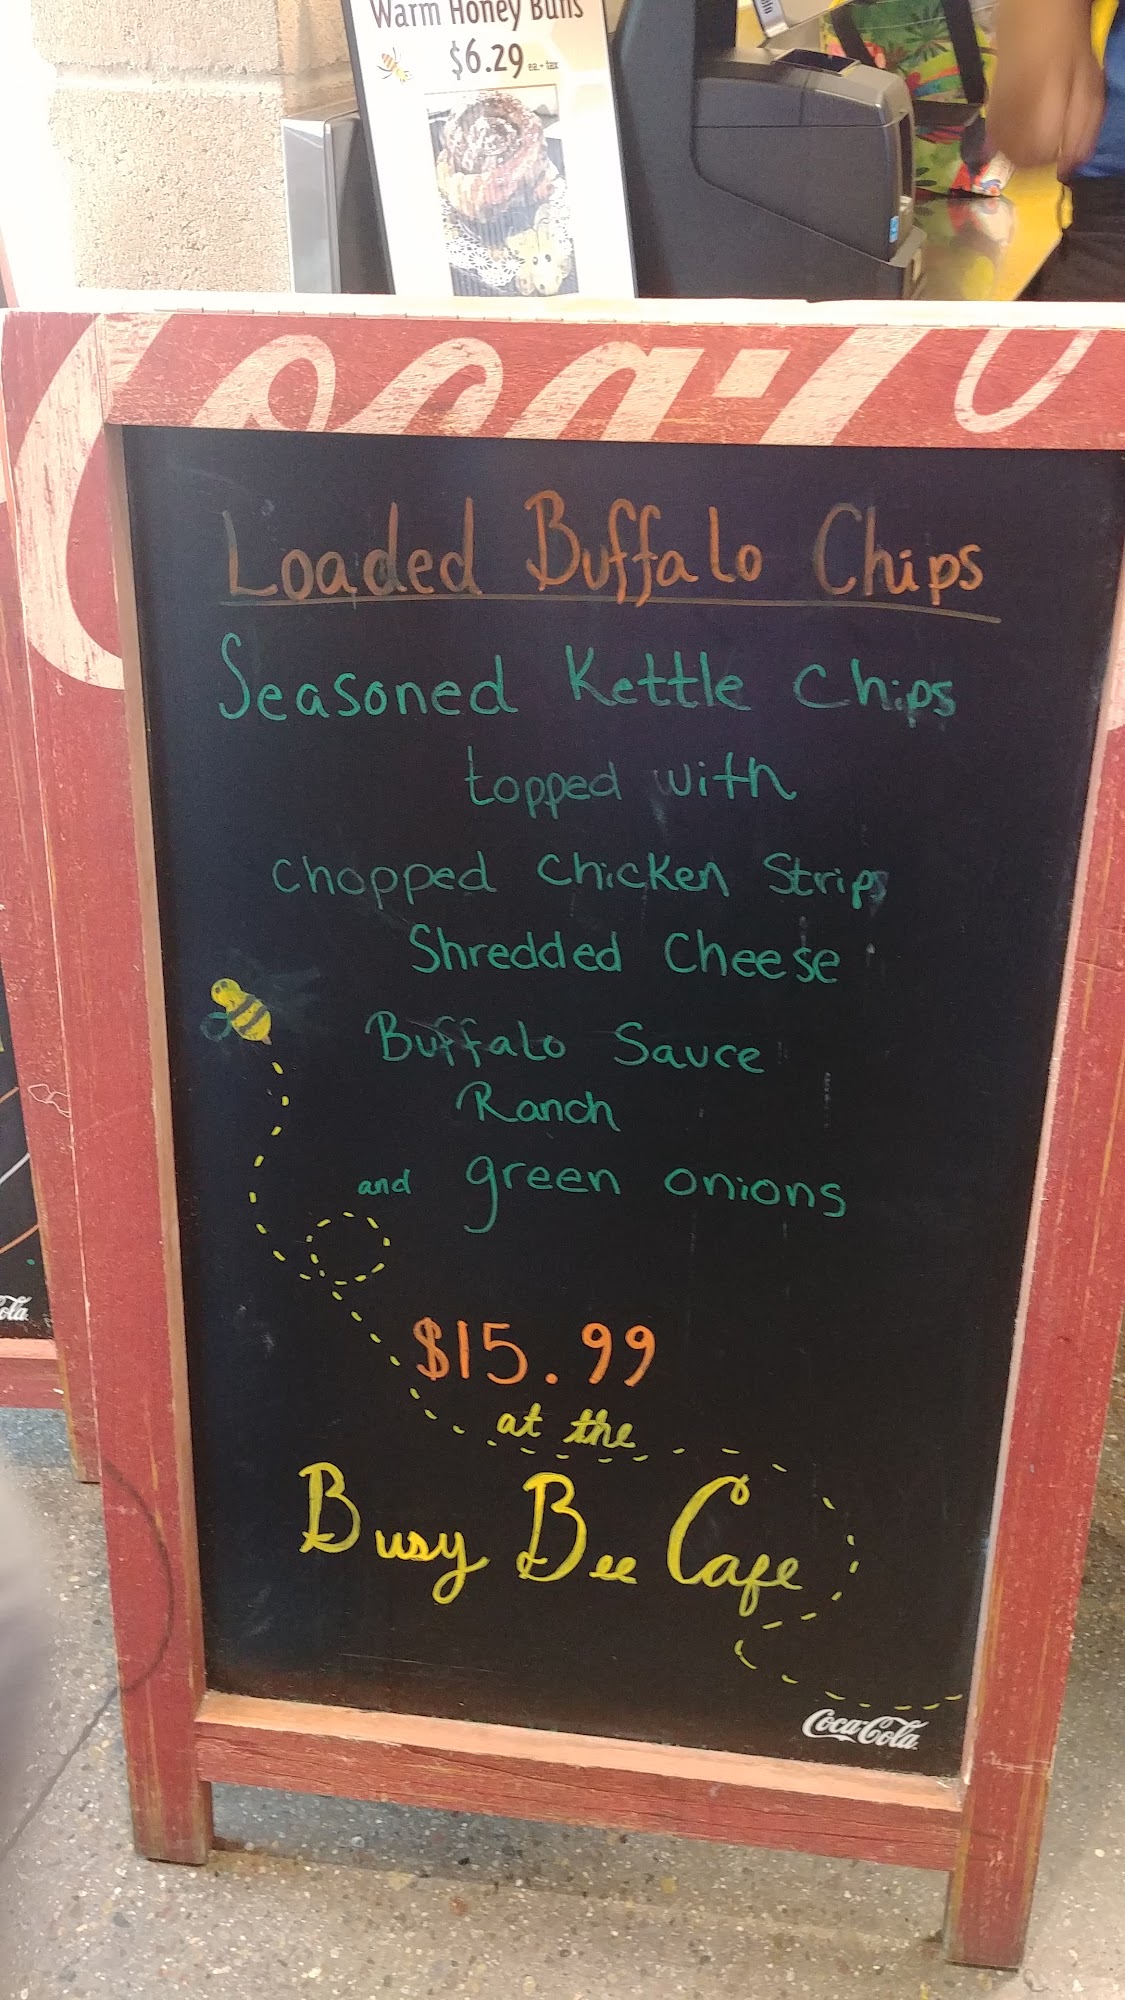 Warm Honey Buns
$6.29 ea. + tax
Coca-Co
Loaded Buffalo Chips
Seasoned Kettle Chips
topped with
chopped Chicken Strips
Shredded Cheese
Buffalo Sauce
Ranch
and green onions
$15.99
at the
Busy Bee Cafe
Coca-Cola
ola